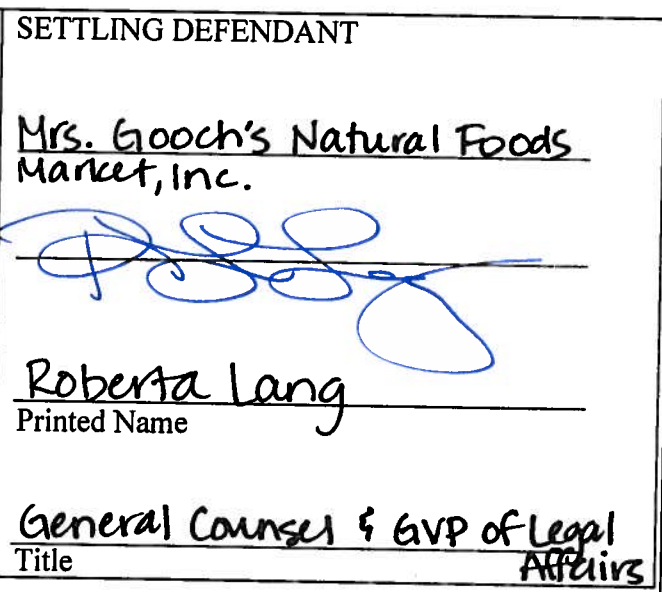 SETTLING DEFENDANT
Mrs. Gooch's Natural Foods
Market, Inc.
Roberta Lang
Printed Name
General Counsel & GVP of Legal
Title
Affairs